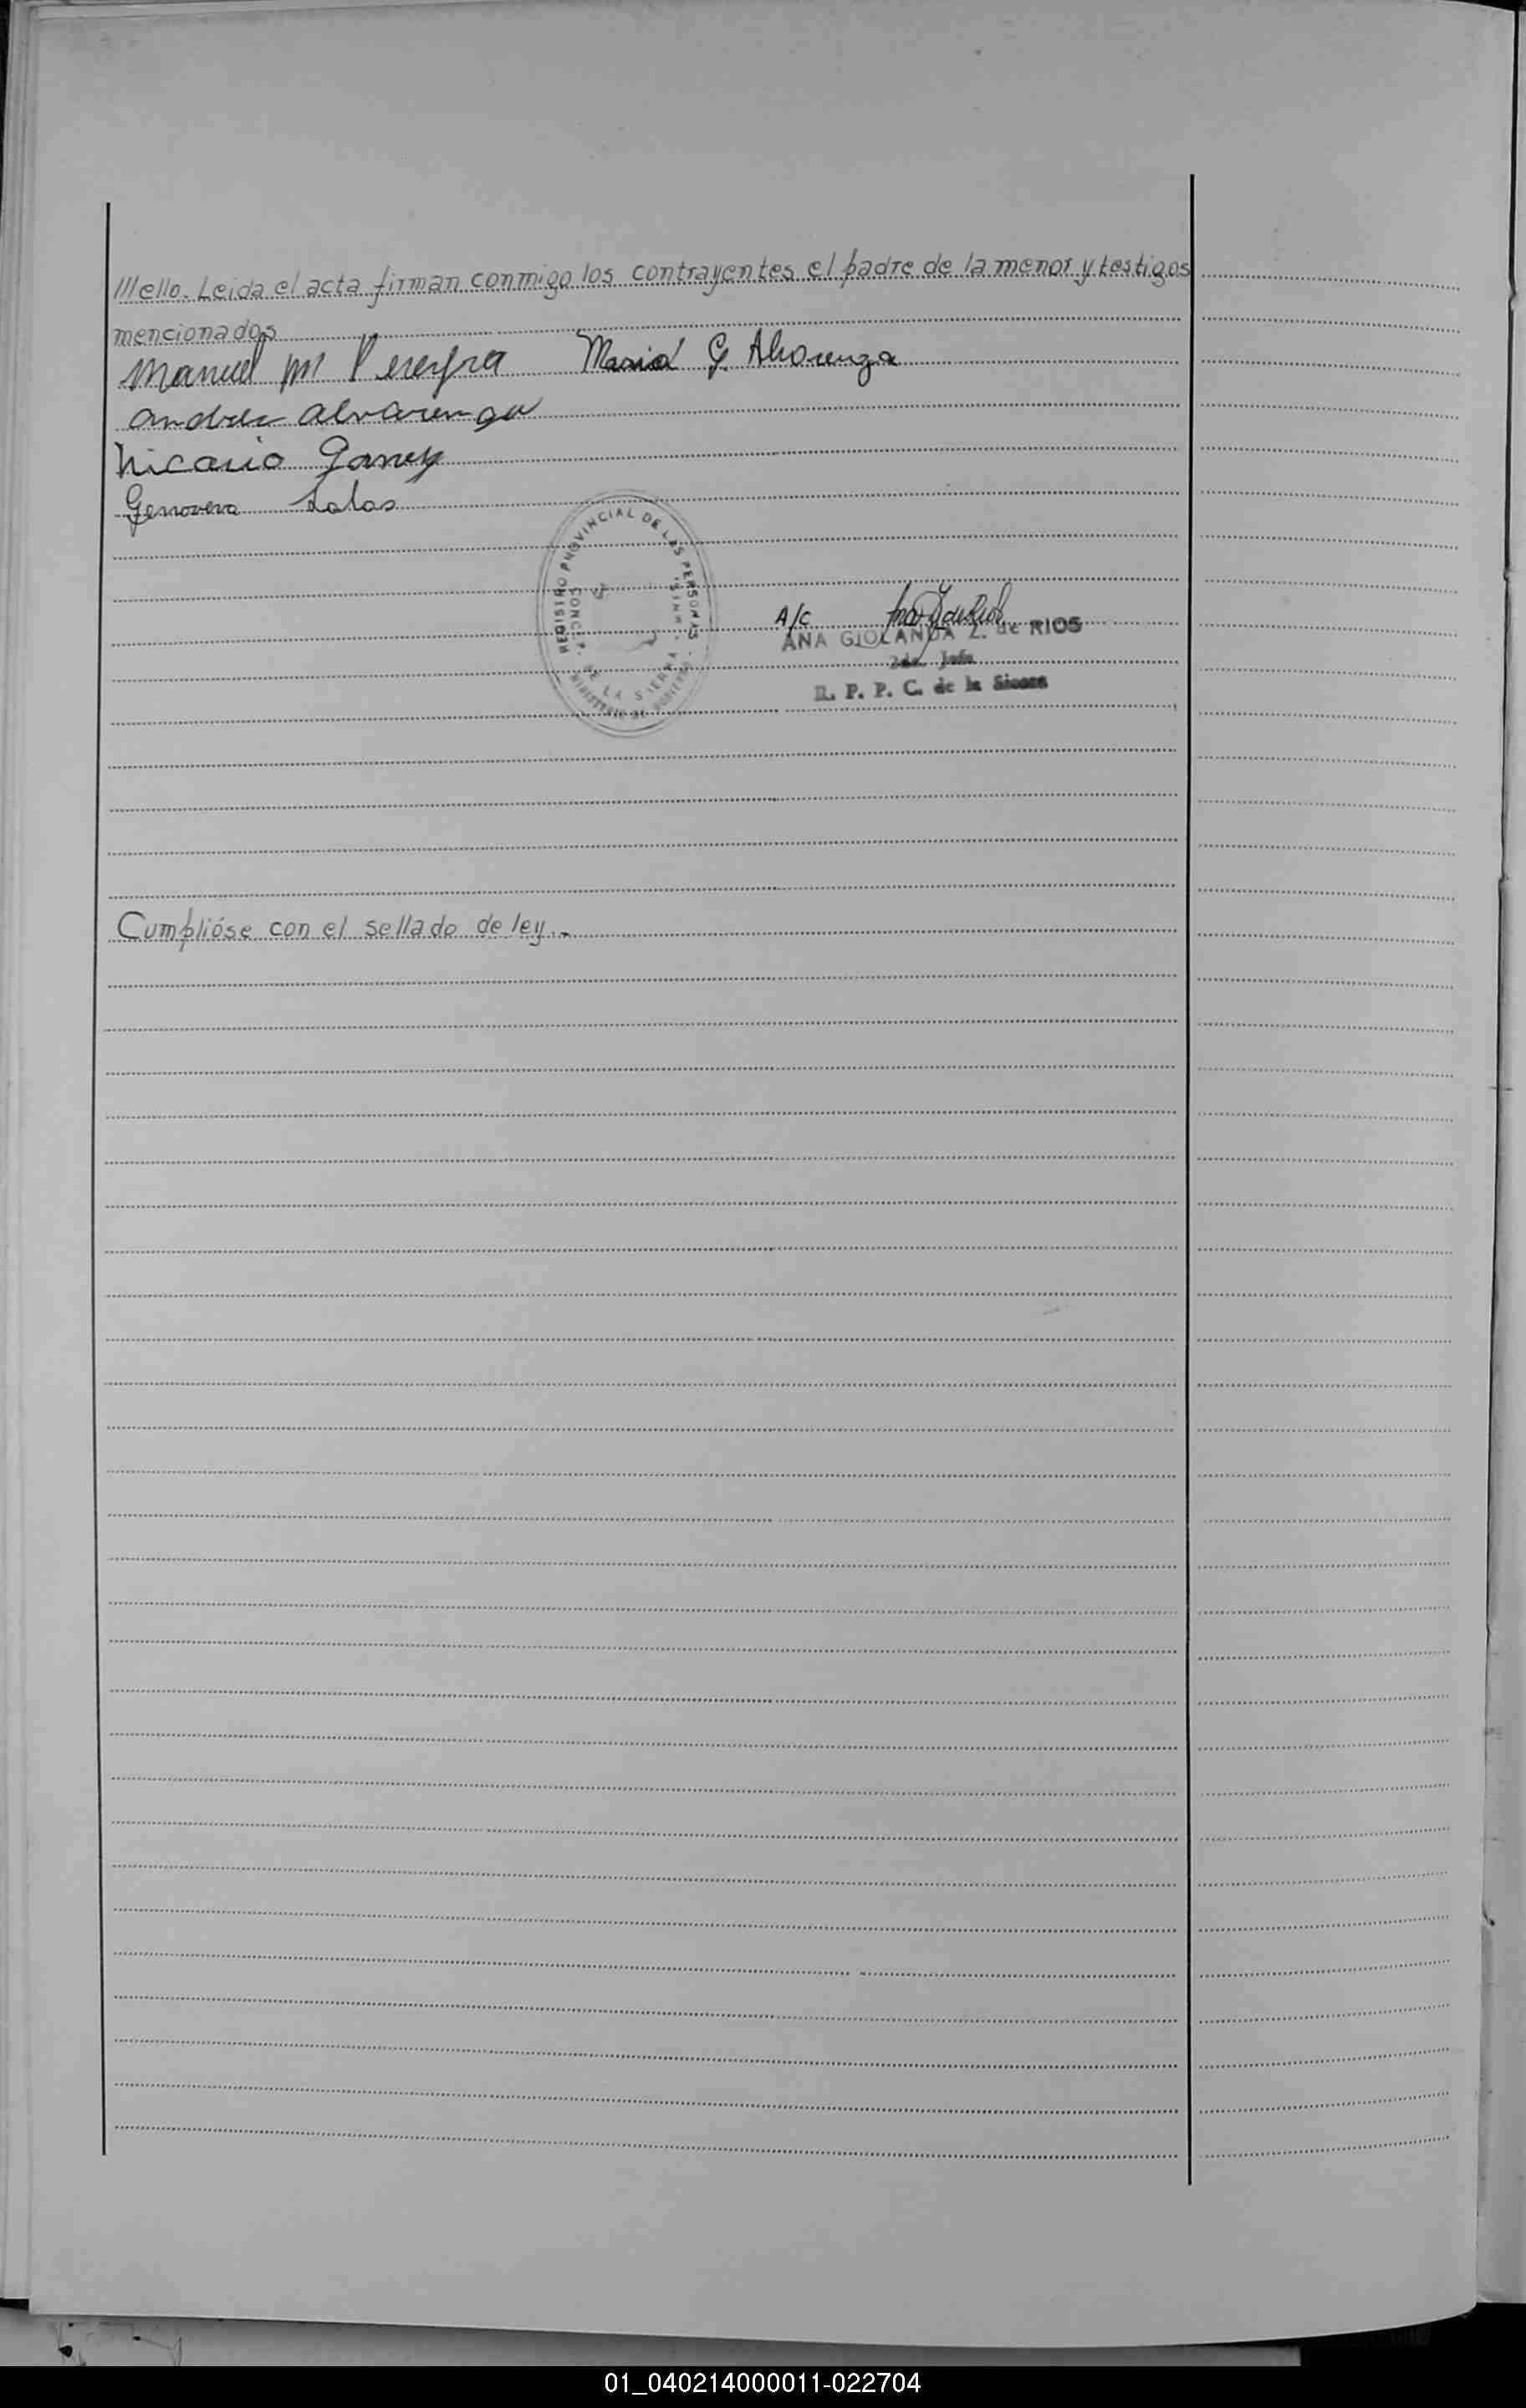 ///ello. Leida el acta firman conmigo los contrayentes el padre de la menor y testigos
mencionados
Manuel M Pereyra Maria G. Alvarenga
Andres Alvarenga
Nicacio
Genoveva Salas
REGISTRO PROVINCIAL DE LAS PERSONAS
CONC. DE LA SIERRA - MNES.
MINISTERIO DE GOBIERNO
A/C
ANA GIOLANDA Z. de RIOS
2da. Jefe
R. P. P. C. de la Sierra
Cumplióse con el sellado de ley.-
01_040214000011-022704